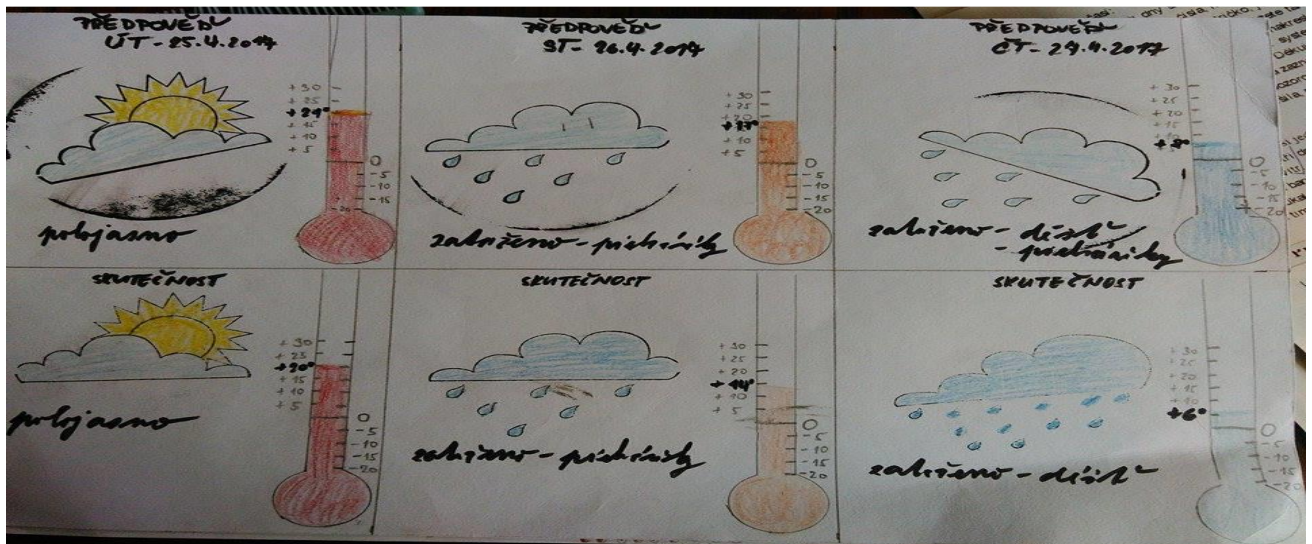 PŘEDPOVĚĎ
ÚT - 25.4.2017
+30
+25
+21°
+15
+10
+5
0
-5
-10
-15
-20
polojasno
PŘEDPOVĚĎ
ST - 26.4.2017
+30
+25
+20
+10
+5
0
-5
-10
-15
-20
zataženo - přeháňky
PŘEDPOVĚĎ
ČT - 27.4.2017
+30
+25
+20
+15
+10
0
-5
-10
-15
-20
zataženo - déšť
- přeháňky
SKUTEČNOST
+30
+25
+20°
+15
+10
+5
0
-5
-10
-15
-20
polojasno
SKUTEČNOST
+30
+25
+20
+14°
+10
+5
0
-5
-10
-15
-20
zataženo - přeháňky
SKUTEČNOST
+30
+25
+20
+15
+10
+6°
0
-5
-10
-15
-20
zataženo - déšť